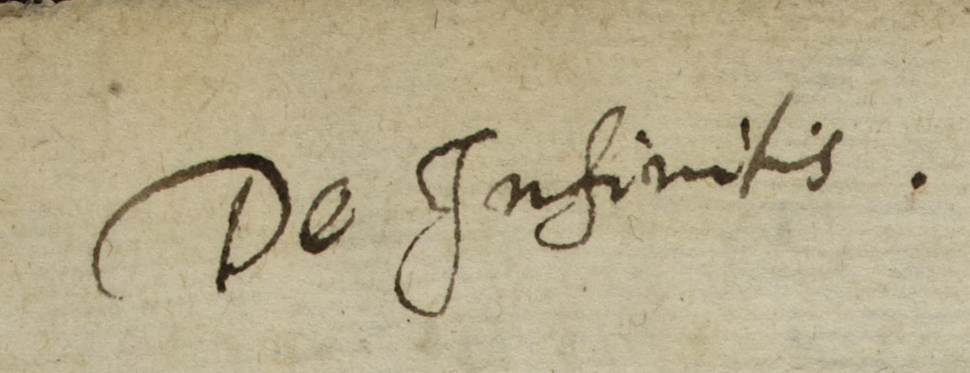 De Infinitis.